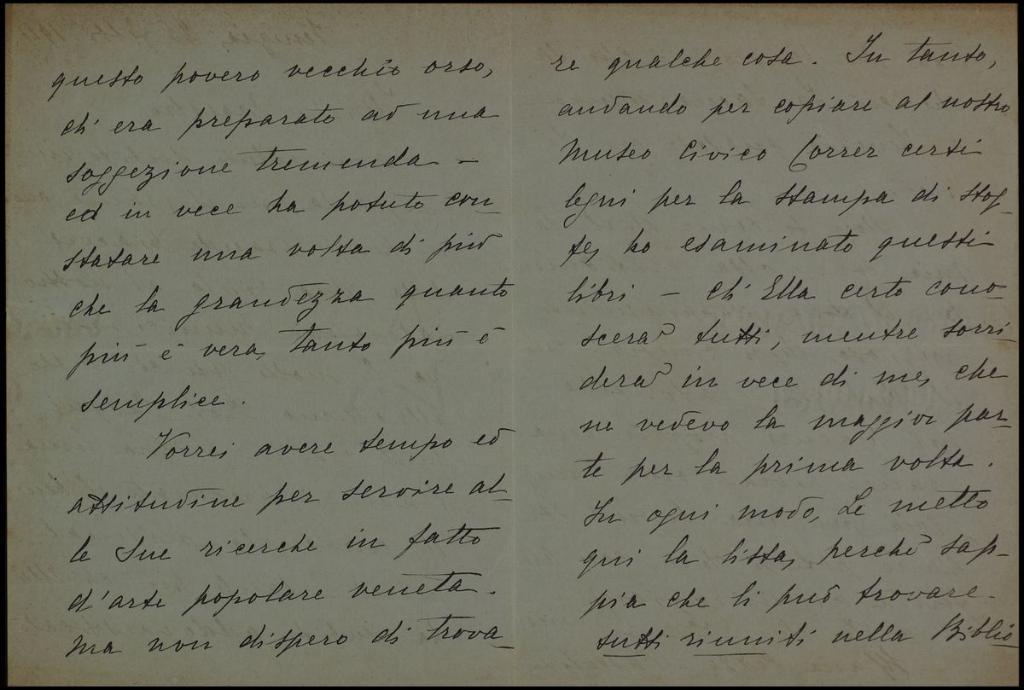 questo povero vecchio orso,
ch' era preparato ad una
soggezione tremenda –
ed in vece ha potuto con-
statare una volta di più
che la grandezza quanto
più è vera, tanto più è
semplice.
Vorrei avere tempo ed
attitudine per servire al-
le Sue ricerche in fatto
d'arte popolare veneta.
Ma non dispero di trova-
re qualche cosa. In tanto,
andando per copiare al nostro
Museo Civico Correr certi
legni per la stampa di stof-
fe, ho esaminato questi
libri – ch' Ella certo cono-
scerà tutti, mentre sorri
derà in vece di me, che
ne vedevo la maggior par-
te per la prima volta.
In ogni modo, Le metto
qui la lista, perchè sap-
pia che li può trovare
tutti riuniti nella Biblio